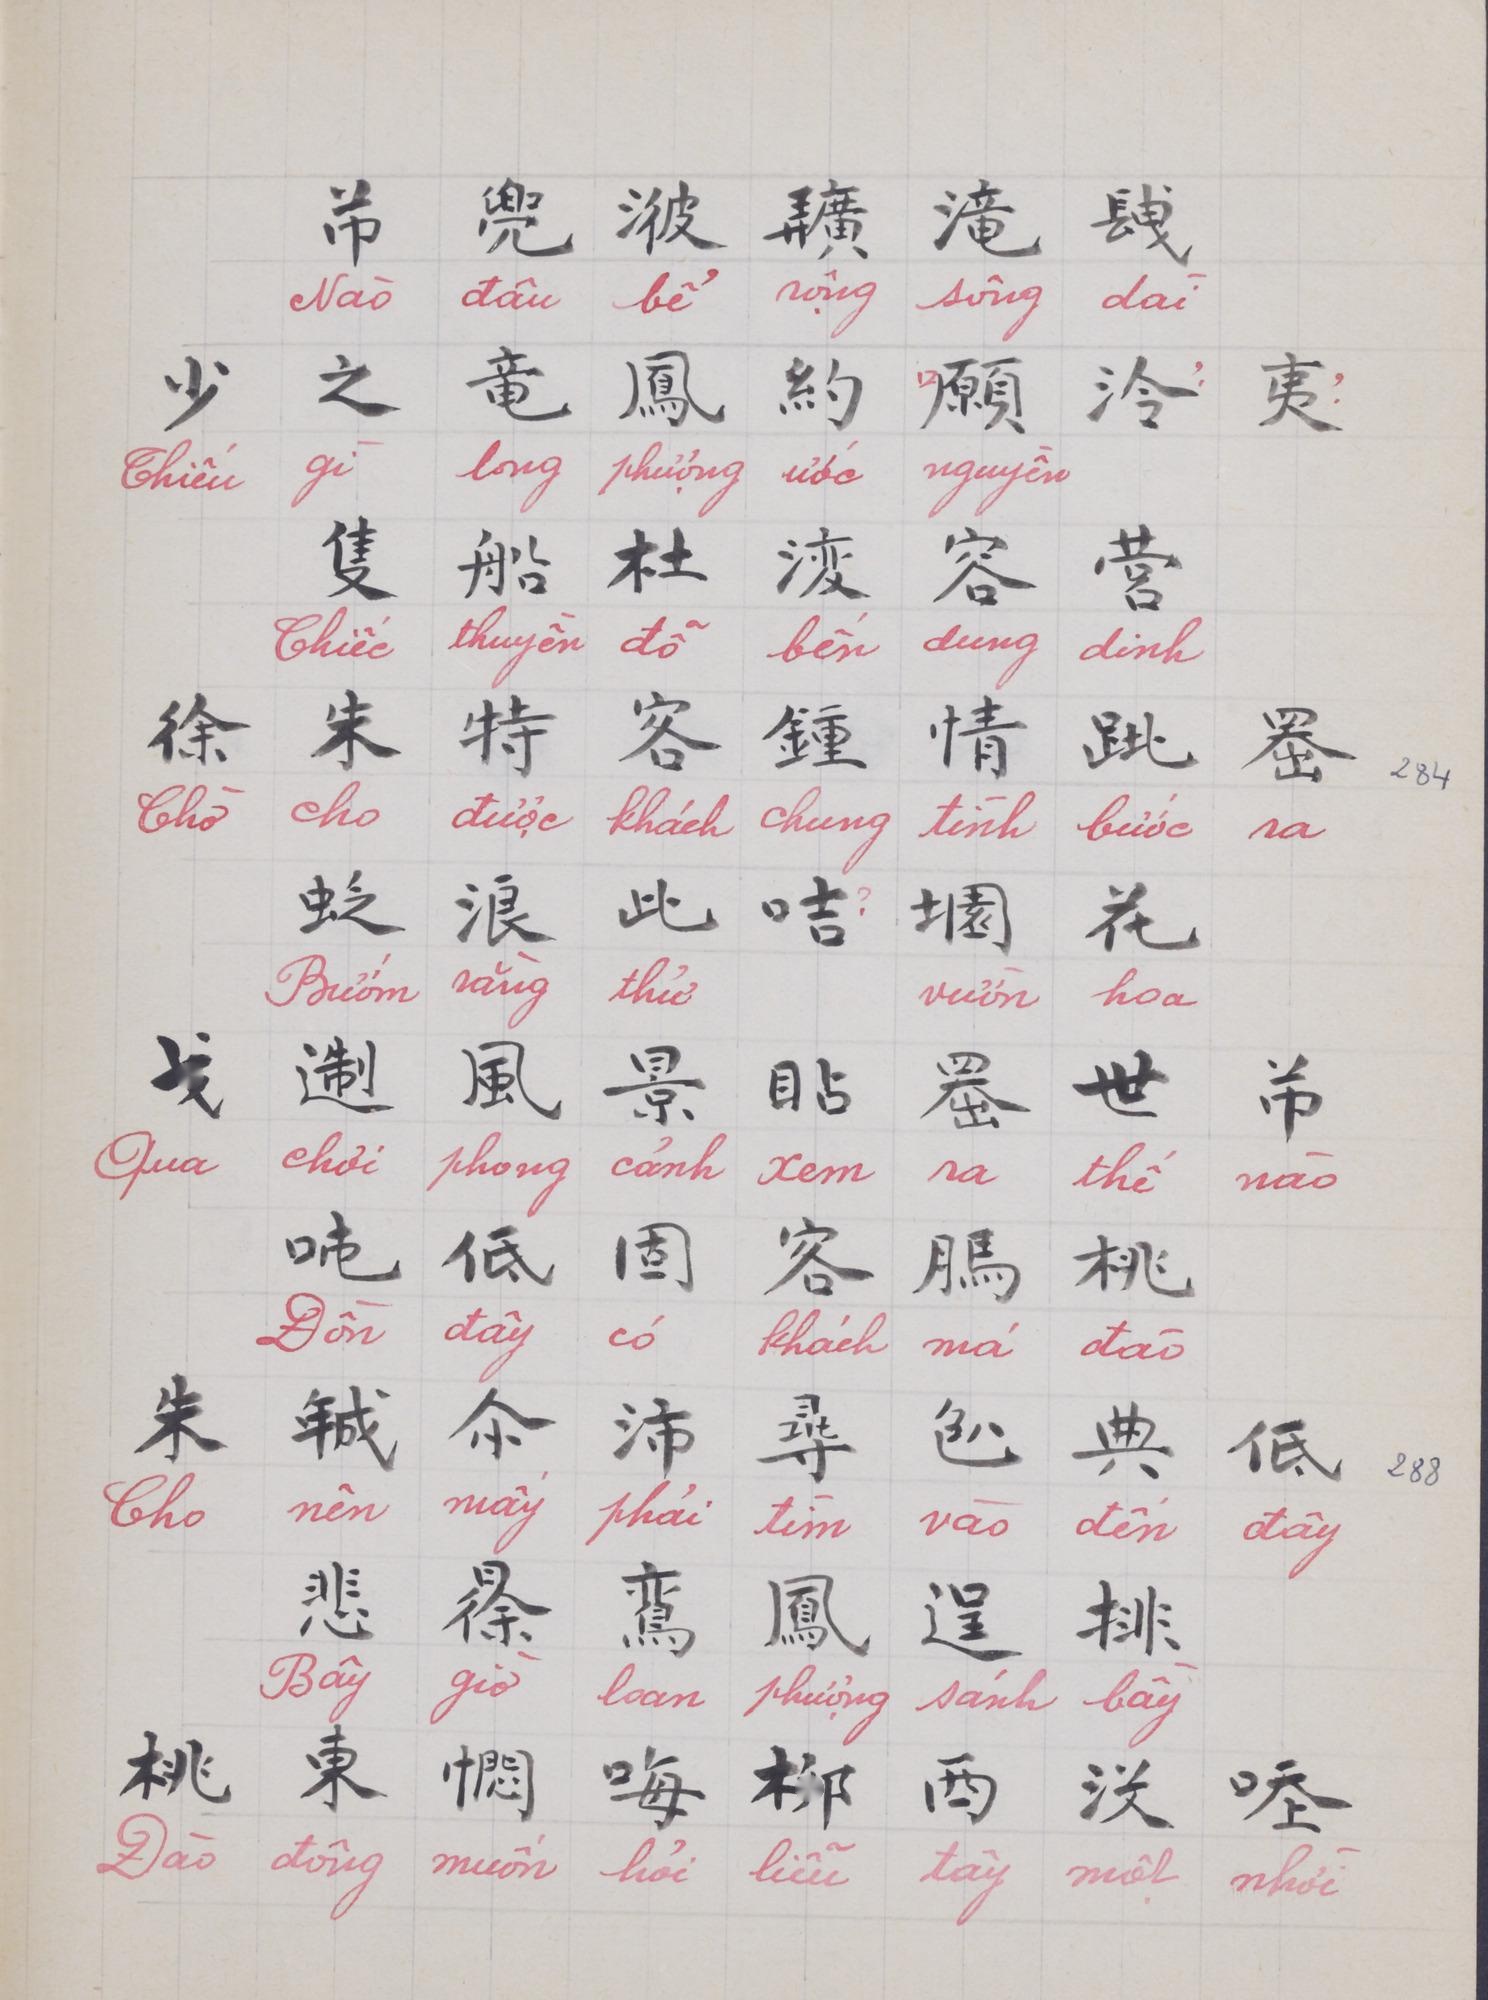 芇 兜 𣷷 𢌌 滝 𨱽
Nào đâu bể rộng sông dài
少 之 竜 鳳 約 願 泠 ? 夷 ?
Thiếu gì long phượng ước nguyền
隻 船 杜 容 営
Chiếc thuyền đỗ bến dung dinh
徐 朱 特 客 鍾 情 𨀈 𦋦 284
Chờ cho được khách chung tình bước ra
浪 此 咭 ? 園 花
Bướm rằng thử vườn hoa
戈 風 景 貼 𦋦 世 芇
Qua chơi phong cảnh xem ra thế nào
吨 低 固 客 桃
Đồn đây có khách má đào
朱 𢧚 尒 沛 尋 𠓨 典 低 288
Cho nên mấy phải tìm vào đến đây
悲 鸞 鳳 逞 排
Bây giờ loan phượng sánh bầy
桃 東 㦖 晦 柳 西 𠳒
Đào đông muốn hỏi liễu tây một nhời